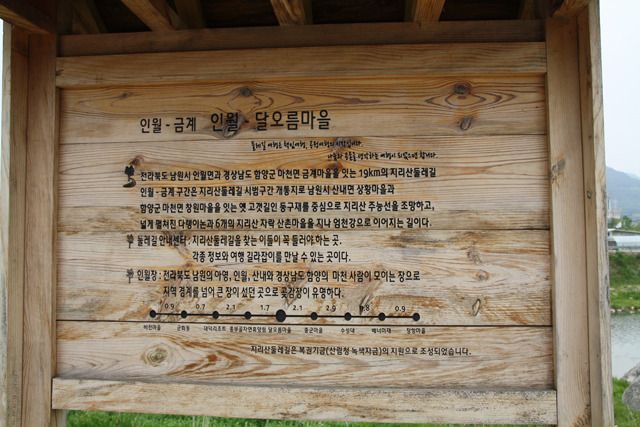 인월 - 금계 인월 - 달오름마을
둘레길 여행은 책임여행, 공정여행의 시작입니다.
전라북도 남원시 인월면과 경상남도 함양군 마천면 금계마을을 잇는 19km의 지리산둘레길
인월 - 금계 구간은 지리산둘레길 시범구간 개통지로 남원시 산내면 상황마을과
함양군 마천면 창원마을을 잇는 옛 고갯길인 등구재를 중심으로 지리산 주능선을 조망하고,
넓게 펼쳐진 다랭이논과 6개의 지리산 자락 산촌마을을 지나 엄천강으로 이어지는 길이다.
둘레길 안내센터 : 지리산둘레길을 찾는 이들이 꼭 들러야 하는 곳.
각종 정보와 여행 길라잡이를 만날 수 있는 곳이다.
인월장 : 전라북도 남원의 아영, 인월, 산내와 경상남도 함양의 마천 사람이 모이는 장으로
지역 경계를 넘어 큰 장이 선던 곳으로 곶감장이 유명하다.
0.9 0.7 2.1 1.7 2.1 2.9 0.8 0.9
비전마을 군화동 대덕리조트 흥부골자연휴양림 달오름마을 중군마을 수성대 배너미재 장항마을
지리산둘레길은 복권기금(산림청 녹색자금)의 지원으로 조성되었습니다.